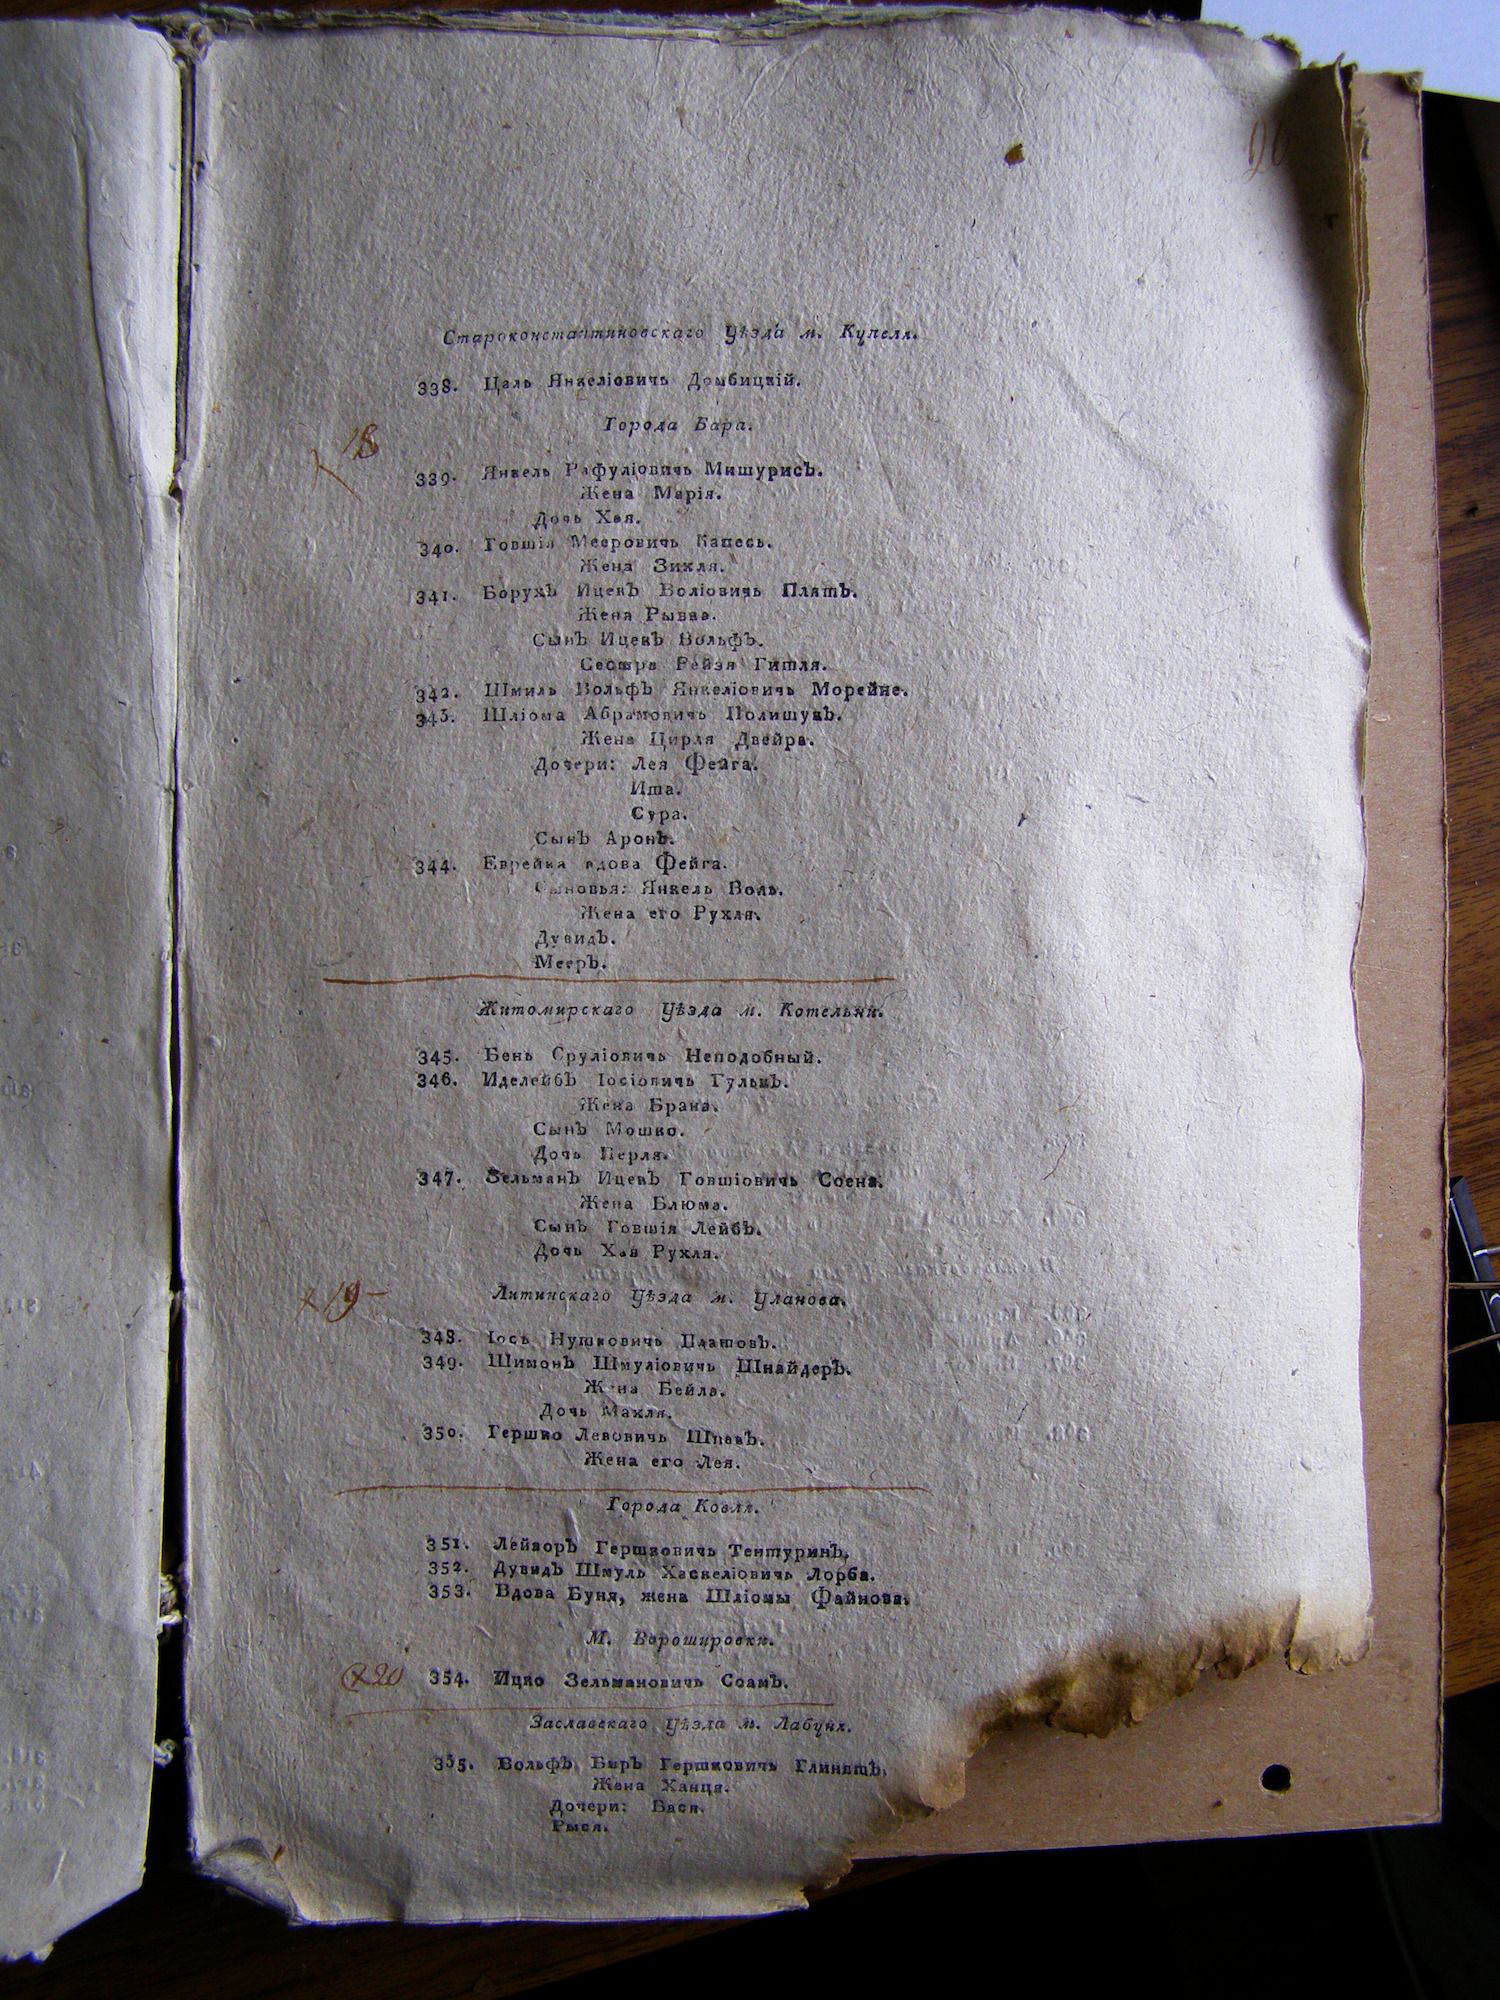 Староконстантиновскаго Уѣзда м. Купеля.
338. Цаль Янкеліовичъ Домбицкій.
Города Бара.
18
339. Янкель Рафуліовичъ Мишурисъ.
Жена Марія.
Дочь Хая.
340. Говшія Мееровичъ Капесъ.
Жена Зихля.
341. Борухъ Ицекъ Воліовичъ Плятъ.
Жена Рывка.
Сынъ Ицекъ Вольфъ.
Сестра Рейзя Гитля.
342. Шмиль Вольфъ Янкеліовичъ Морейне.
343. Шліома Абрамовичъ Полищукъ.
Жена Цирля Двейра.
Дочери: Лея Фейга.
Ита.
Сура.
Сынъ Аронъ.
344. Еврейка вдова Фейга.
Сыновья: Янкель Воль.
Жена его Рухля.
Дувидъ.
Мееръ.
Житомирскаго Уѣзда м. Котельни.
345. Бень Сруліовичъ Неподобный.
346. Иделейбъ Іосіовичъ Гулькъ.
Жена Брана.
Сынъ Мошко.
Дочь Перля.
347. Зельманъ Ицекъ Говшіовичъ Соена.
Жена Блюма.
Сынъ Говшія Лейбъ.
Дочь Хая Рухля.
х 19
Литинскаго Уѣзда м. Уланова.
348. Іось Нушковичъ Платовъ.
349. Шимонъ Шмуліовичъ Шнайдеръ.
Жена Бейла.
Дочь Махля.
350. Гершко Левовичъ Шпакъ.
Жена его Лея.
Города Ковля.
351. Лейзоръ Гершковичъ Тентуринъ.
352. Дувидъ Шмуль Хаскеліовичъ Лорба.
353. Вдова Буня, жена Шліомы Файнова.
М. Ворошировки.
х 20
354. Ицко Зельмановичъ Соамъ.
Заславскаго Уѣзда м. Лабуня.
355. Вольфъ Беръ Гершковичъ Глинятъ.
Жена Ханця.
Дочери: Бася.
Рыся.